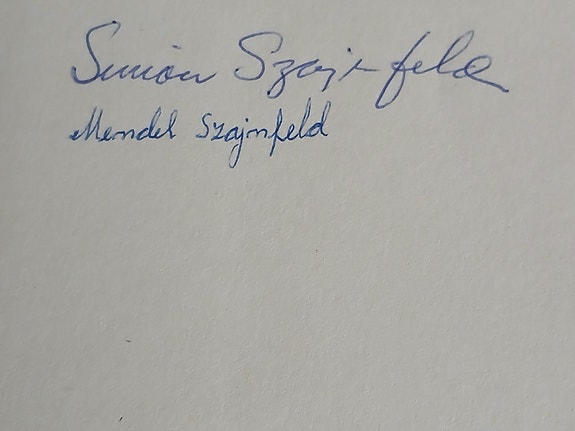 Simon Szajnfeld
Mendel Szajnfeld